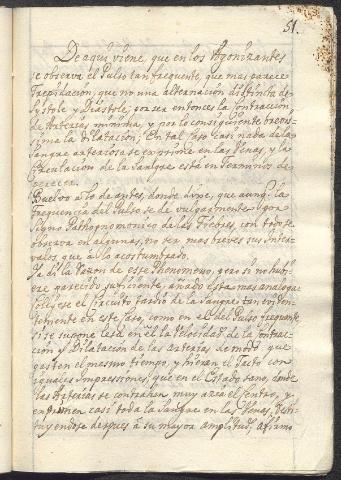 51.
De aqui viene, que en los Agonizantes
se observa el Pulso tan frequente, que mas parece
trepidacion, que no una alternacion distinta de
Systole y Diastole; por ser entonces la Contraccion
de Arterias minima, y por lo consiguiente brevis-
sima la Dilatacion; En tal caso casi nada de la
Sangre arteriosa se exprime en las Venas, y la
Circulacion de la Sangre està en Terminos de
perecer.
Buelvo a lo de antes, donde dixe, que aunq. la
frequencia del Pulso se de vulgarmente por
Signo Pathognomonico de las Fiebres, con todo se
observa en algunas, no ser mas breves sus Inter-
valos que a lo acostumbrado.
Yà di la Razon de este Phenomeno, pero si no hubi-
ere parecido suficiente, añado esta mas analoga
solucion: el circuito tardio de la Sangre tan eviden-
temente en este caso, como en el del Pulso frequente
si se supone lesa en èl la Velocidad de la Contrac-
cion y Dilatacion de las Arterias de modo que
gasten el mesmo tiempo, y hieran el Tacto con
iguales Impressiones, que en el Estado sano, donde
las Arterias se contrahen muy azia el Centro, y
exprimen casi toda la Sangre en las Venas, Resti-
tuyendose despues à su mayor amplitud, afirmo